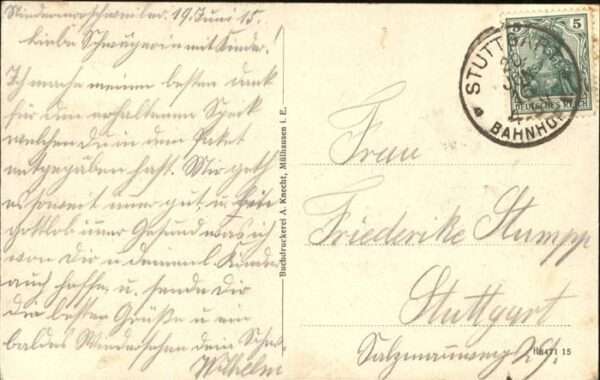 Niedermorschweiler. 19. Juni 15.
Liebe Schwägerin mit Kinder!
Ich mache meinen besten Dank
für den erhaltenen Speck
welchen du in dem Paket
mitgegäben hast. Mir geth
es soweit immer gut u. bin
gottlob immer Gesund was ich
von Dir u deinene Kinder
auch hoffe u. sende Dir
die besten Grüße u ein
baldes Wiedersehen dein Schw.
Wilhelm
Buchdruckerei A. Knecht, Mülhausen i. E.
5
DEUTSCHES REICH
STUTTGART
20.
JUN
BAHNHOF
Frau
Friederike Stumpp
Stuttgart
Salzmannweg
15